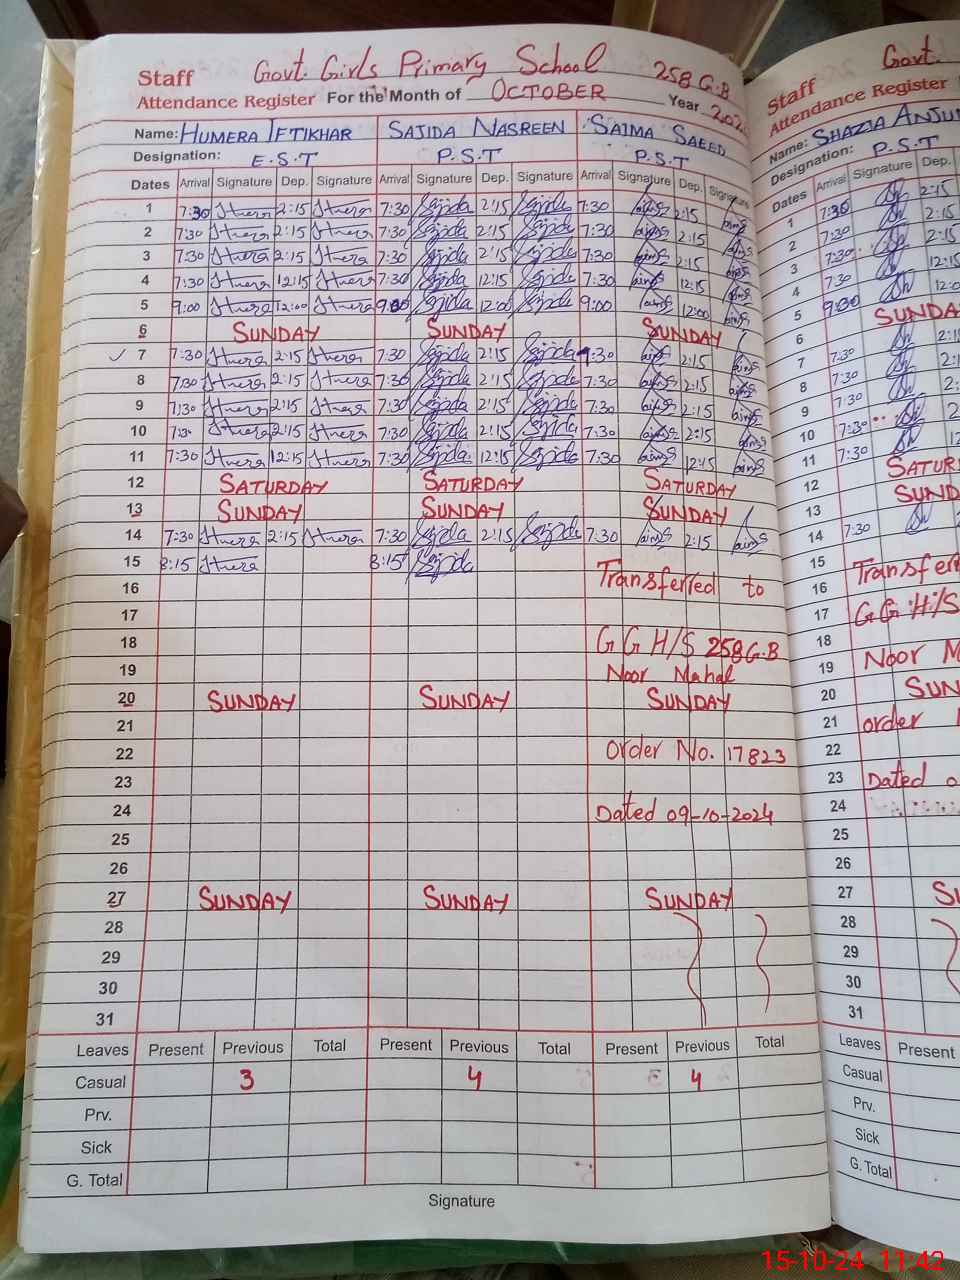 Staff Govt. Girls Primary School 258 G.B
Attendance Register For the Month of OCTOBER Year 202
Name: HUMERA IFTIKHAR SAJIDA NASREEN SAIMA SAEED
Designation: E.S.T P.S.T P.S.T
Dates Arrival Signature Dep. Signature Arrival Signature Dep. Signature Arrival Signature Dep. Signature
1 7:30 2:15 7:30 Sajida 2:15 Sajida 7:30 2:15
2 7:30 2:15 7:30 Sajida 2:15 Sajida 7:30 2:15
3 7:30 2:15 7:30 Sajida 2:15 Sajida 7:30 2:15
4 7:30 12:15 7:30 Sajida 12:15 Sajida 7:30 12:15
5 9:00 12:00 9:00 Sajida 12:00 Sajida 9:00 12:00
6 SUNDAY SUNDAY SUNDAY
7 7:30 2:15 7:30 Sajida 2:15 Sajida 7:30 2:15
8 7:30 2:15 7:30 Sajida 2:15 Sajida 7:30 2:15
9 7:30 2:15 7:30 Sajida 2:15 Sajida 7:30 2:15
10 7:30 2:15 7:30 Sajida 2:15 Sajida 7:30 2:15
11 7:30 12:15 7:30 Sajida 12:15 Sajida 7:30 12:15
12 SATURDAY SATURDAY SATURDAY
13 SUNDAY SUNDAY SUNDAY
14 7:30 2:15 7:30 Sajida 2:15 Sajida 7:30 2:15
15 8:15 8:15 Sajida
16 Transferred to
17
18 G G H/S 258 G.B
19 Noor Mahal
20 SUNDAY SUNDAY SUNDAY
21
22 Order No. 17823
23
24 Dated 09-10-2024
25
26
27 SUNDAY SUNDAY SUNDAY
28
29
30
31
Leaves Present Previous Total Present Previous Total Present Previous Total
Casual 3 4 4
Prv.
Sick
G. Total
Signature
Staff Govt.
Attendance Register
Name: SHAZIA ANJU
Designation: P.S.T
Dates Arrival Signature Dep.
1 7:30 2:15
2 7:30 2:15
3 7:30 2:15
4 7:30 12:15
5 9:00 12:0
6 SUNDA
7 7:30 2:1
8 7:30 2:1
9 7:30 2
10 7:30 2
11 7:30 12
12 SATUR
13 SUND
14 7:30
15
16 Transfer
17 G G H/S
18
19 Noor M
20 SUN
21 order
22
23 Dated 0
24
25
26
27 SU
28
29
30
31
Leaves Present
Casual
Prv.
Sick
G. Total
15-10-24 11:42